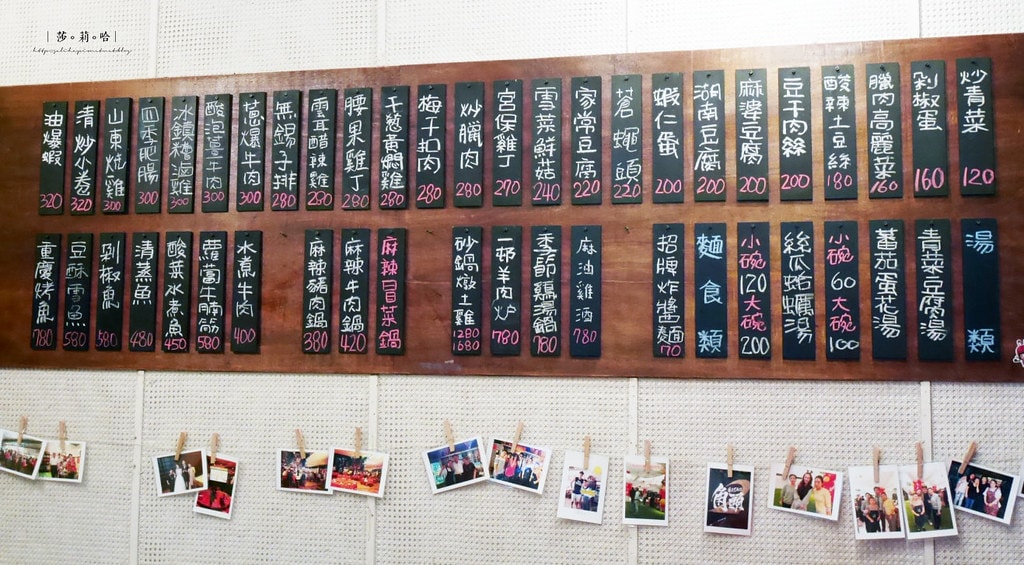 |莎。莉。哈|
炒青菜 120
剁椒蛋 160
臘肉高麗菜 160
酸辣土豆絲 180
豆干肉絲 200
麻婆豆腐 200
湖南豆腐 200
蝦仁蛋 200
蒼蠅頭 220
家常豆腐 220
雪菜鮮菇 240
宮保雞丁 270
炒臘肉 280
梅干扣肉 280
干蔥黃燜雞 280
腰果雞丁 280
雲耳醋辣雞 280
無錫子排 280
蔥爆牛肉 300
酸泡薑牛肉 300
冰鎮糟滷雞 300
四季肥腸 300
山東燒雞 300
清炒小卷 320
油爆蝦 320
湯類
青菜豆腐湯
蕃茄蛋花湯
小碗60大碗100
絲瓜蛤蠣湯
小碗120大碗200
麵食類
招牌炸醬麵 70
麻油雞酒 780
季節雞湯鍋 780
一品羊肉炉 780
砂鍋燉土雞 280 1680
麻辣冒菜鍋
麻辣牛肉鍋 420
麻辣豬肉鍋 380
水煮牛肉 400
蘿蔔牛腩筋 580
酸菜水煮魚 450
清蒸魚 480
剁椒魚 580
豆酥雪魚 580
重慶烤魚 780